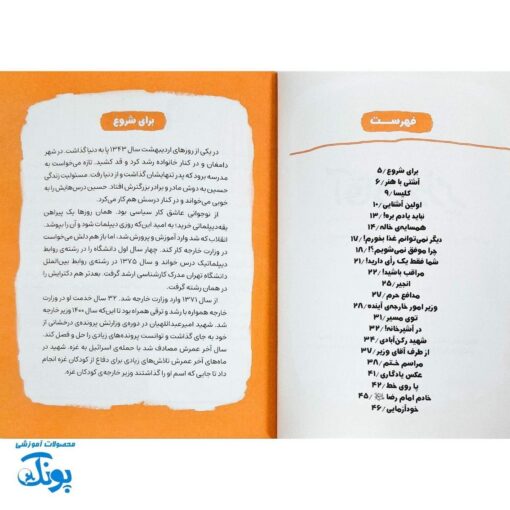 فهرست
برای شروع/۵
آشتی با هنر/۶
کلیسا/۹
اولین آشنایی/۱۰
نباید یادم بره!/۱۳
همسایه‌ی خاله/۱۴
دیگر نمی‌توانم غذا بخورم!/۱۷
چرا موفق نمی‌شویم؟!/۱۸
شما فقط یک رأی دارید!/۲۱
مراقب باشید!/۲۲
انجیر/۲۵
مدافع حرم/۲۷
وزیر امور خارجه‌ی آینده/۲۸
توی مسیر/۳۱
در آشپزخانه!/۳۲
شهید رکن‌آبادی/۳۴
از طرف آقای وزیر/۳۷
مراسم ختم/۳۸
عکس یادگاری/۴۱
پا روی خط/۴۲
خادم امام رضا/۴۵
خودآزمایی/۴۶
برای شروع
در یکی از روزهای اردیبهشت سال ۱۳۴۳ پا به دنیا گذاشت. در شهر
دامغان و در کنار خانواده رشد کرد و قد کشید. تازه می‌خواست به
مدرسه برود که پدر تنهایشان گذاشت و از دنیا رفت. مسئولیت زندگی
حسین به دوش مادر و برادر بزرگترش افتاد. حسین درس‌هایش را به
خوبی می‌خواند و در کنار درسش هم کار می‌کرد.
از نوجوانی عاشق کار سیاسی بود. همان روزها یک پیراهن
یقه‌دیپلماتی خرید؛ به این امید که روزی دیپلمات شود و آن را بپوشد.
انقلاب که شد وارد آموزش و پرورش شد، اما باز هم دلش می‌خواست
در وزارت خارجه کار کند. چهار سال اول دانشگاه را در رشته‌ی روابط
دیپلماتیک درس خواند و سال ۱۳۷۵ در رشته‌ی روابط بین‌الملل
دانشگاه تهران مدرک کارشناسی ارشد گرفت. بعدتر هم دکترایش را
در همان رشته گرفت.
از سال ۱۳۷۱ وارد وزارت خارجه شد. ۳۲ سال خدمت او در وزارت
خارجه همواره با رشد و ترقی همراه بود تا این‌که سال ۱۴۰۰ وزیر خارجه
شد. شهید امیرعبداللهیان در دوره‌ی وزارتش پرونده‌ی درخشانی از
خود به جای گذاشت و توانست پرونده‌های زیادی را حل و فصل کند.
سال آخر عمرش مصادف شد با حمله‌ی اسرائیل به غزه. شهید در
ماه‌های آخر عمرش تلاش‌های زیادی برای دفاع از کودکان غزه انجام
داد تا جایی که اسم او را گذاشتند وزیر خارجه‌ی کودکان غزه.
محصولات آموزشی
پونک